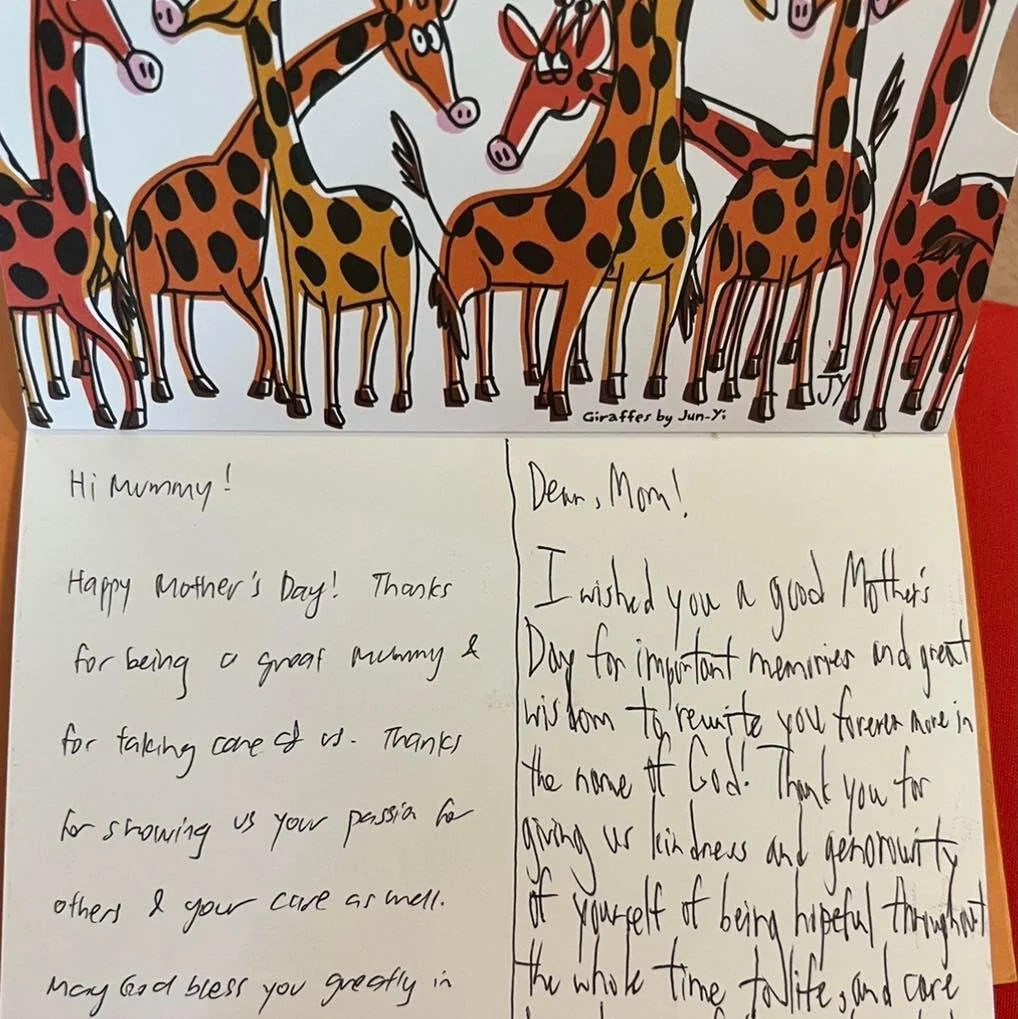 JY
Giraffes by Jun-Yi
Hi Mummy!
Happy Mother's Day! Thanks
for being a great mummy &
for taking care of us. Thanks
for showing us your passion for
others & your care as well.
May God bless you greatly in
Dear, Mom!
I wished you a good Mother's
Day for important memories and great
wisdom to rewite you forever more in
the name of God! Thank you for
giving us kindness and
of yourself of being hopeful throughout
the whole time to life, and care